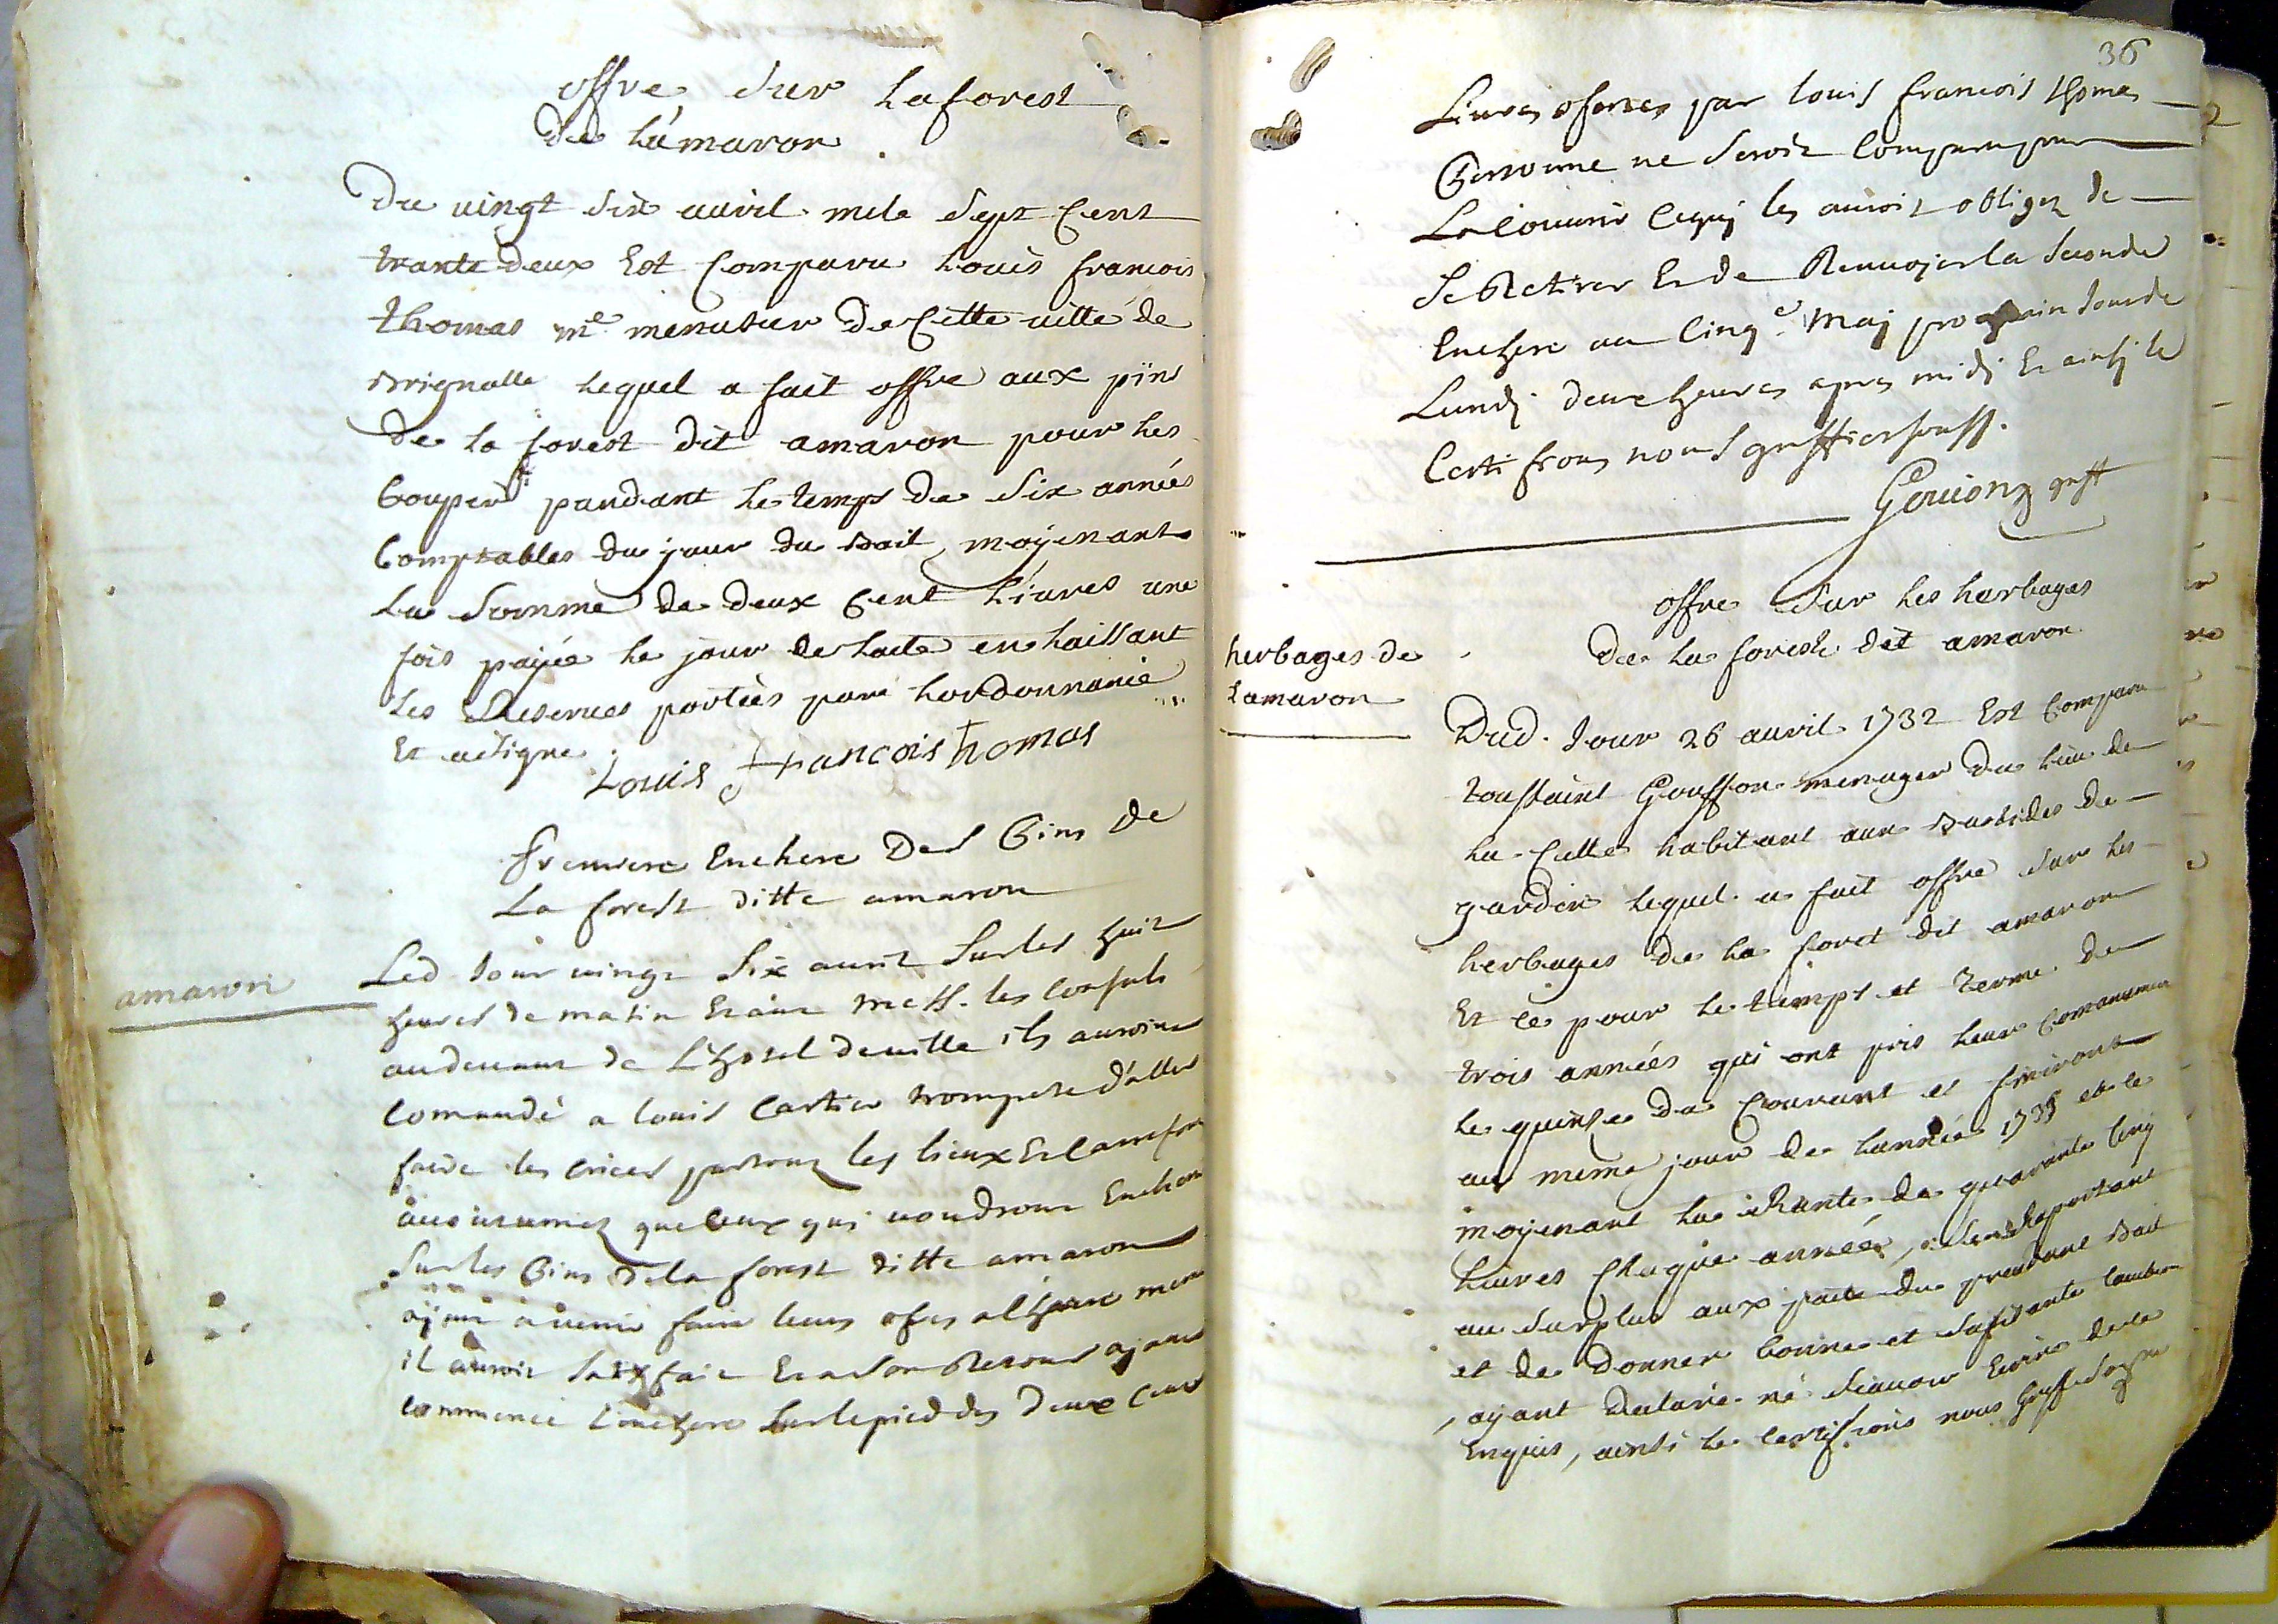 offre sur la forest
de l'amaron
Du vingt six auvril mile sept cent
trante deux Est comparu Louis francois
thomas me menusier De Cette ville de
Brignolle lequel a fait offre aux pins
de la forest dit amaron pour les
couper pandant le temps de six années
Comptables du jour du Bail, moyenant
La somme de deux cent livres une
fois payée le jour de lacte en laissant
les Reserves portées par lordonnance
Et a signe
Louis francois thomas
premiere Enchere Des Pins de
La forest ditte amaron
amaron
Led Jour vingt six avril sur les huit
heures de matin Etant mess. les consuls
au devant de L'hotel de ville ils auroint
comandé a louis Cartier trompete d'aller
faire les criees partout les lieux Et Carrefour
accoutumez que ceux qui voudront Encherir
sur les Pins de la forest ditte amaron
ayent a venir faire leurs ofres a l'heure meme
il auroit satisfait Et a son Retour ayant
commencé l'enchere sur le pied des deux Cent
36
Livres ofertes par louis francois thomas
Personne ne seroit comparu pour
La couvrir ce quj les auroit obligez de
se Retirer Et de Renvojer la seconde
Enchere au cinqe maj prochain jour de
Lundj deux heures apres midj Et ainsj le
Certifions nous greffier souss.
greff
offre sur les herbages
De la forest dit amaron
herbages de
Lamaron
Dud. Jour 26 auvril 1732 Est comparu
toussaint menager du lieu de
La Celle habitant aux Bastides de
gardin lequel a fait offre sur les
herbages de la foret dit amaron
Et ce pour le temps et terme de
trois années qui ont pris leur comancement
le quinse du Courant et finiront
au meme jour de l'année 1735 et ce
moyenant la Rante de quarante cinq
livres chaque année, Raportant
au surplus aux pacte du presant Bail
et de donner bonne et sufisante caution
, ayant declaré né scavoir Ecrire de ce
Enquis, ainsi le certiffions nous greff. soussne